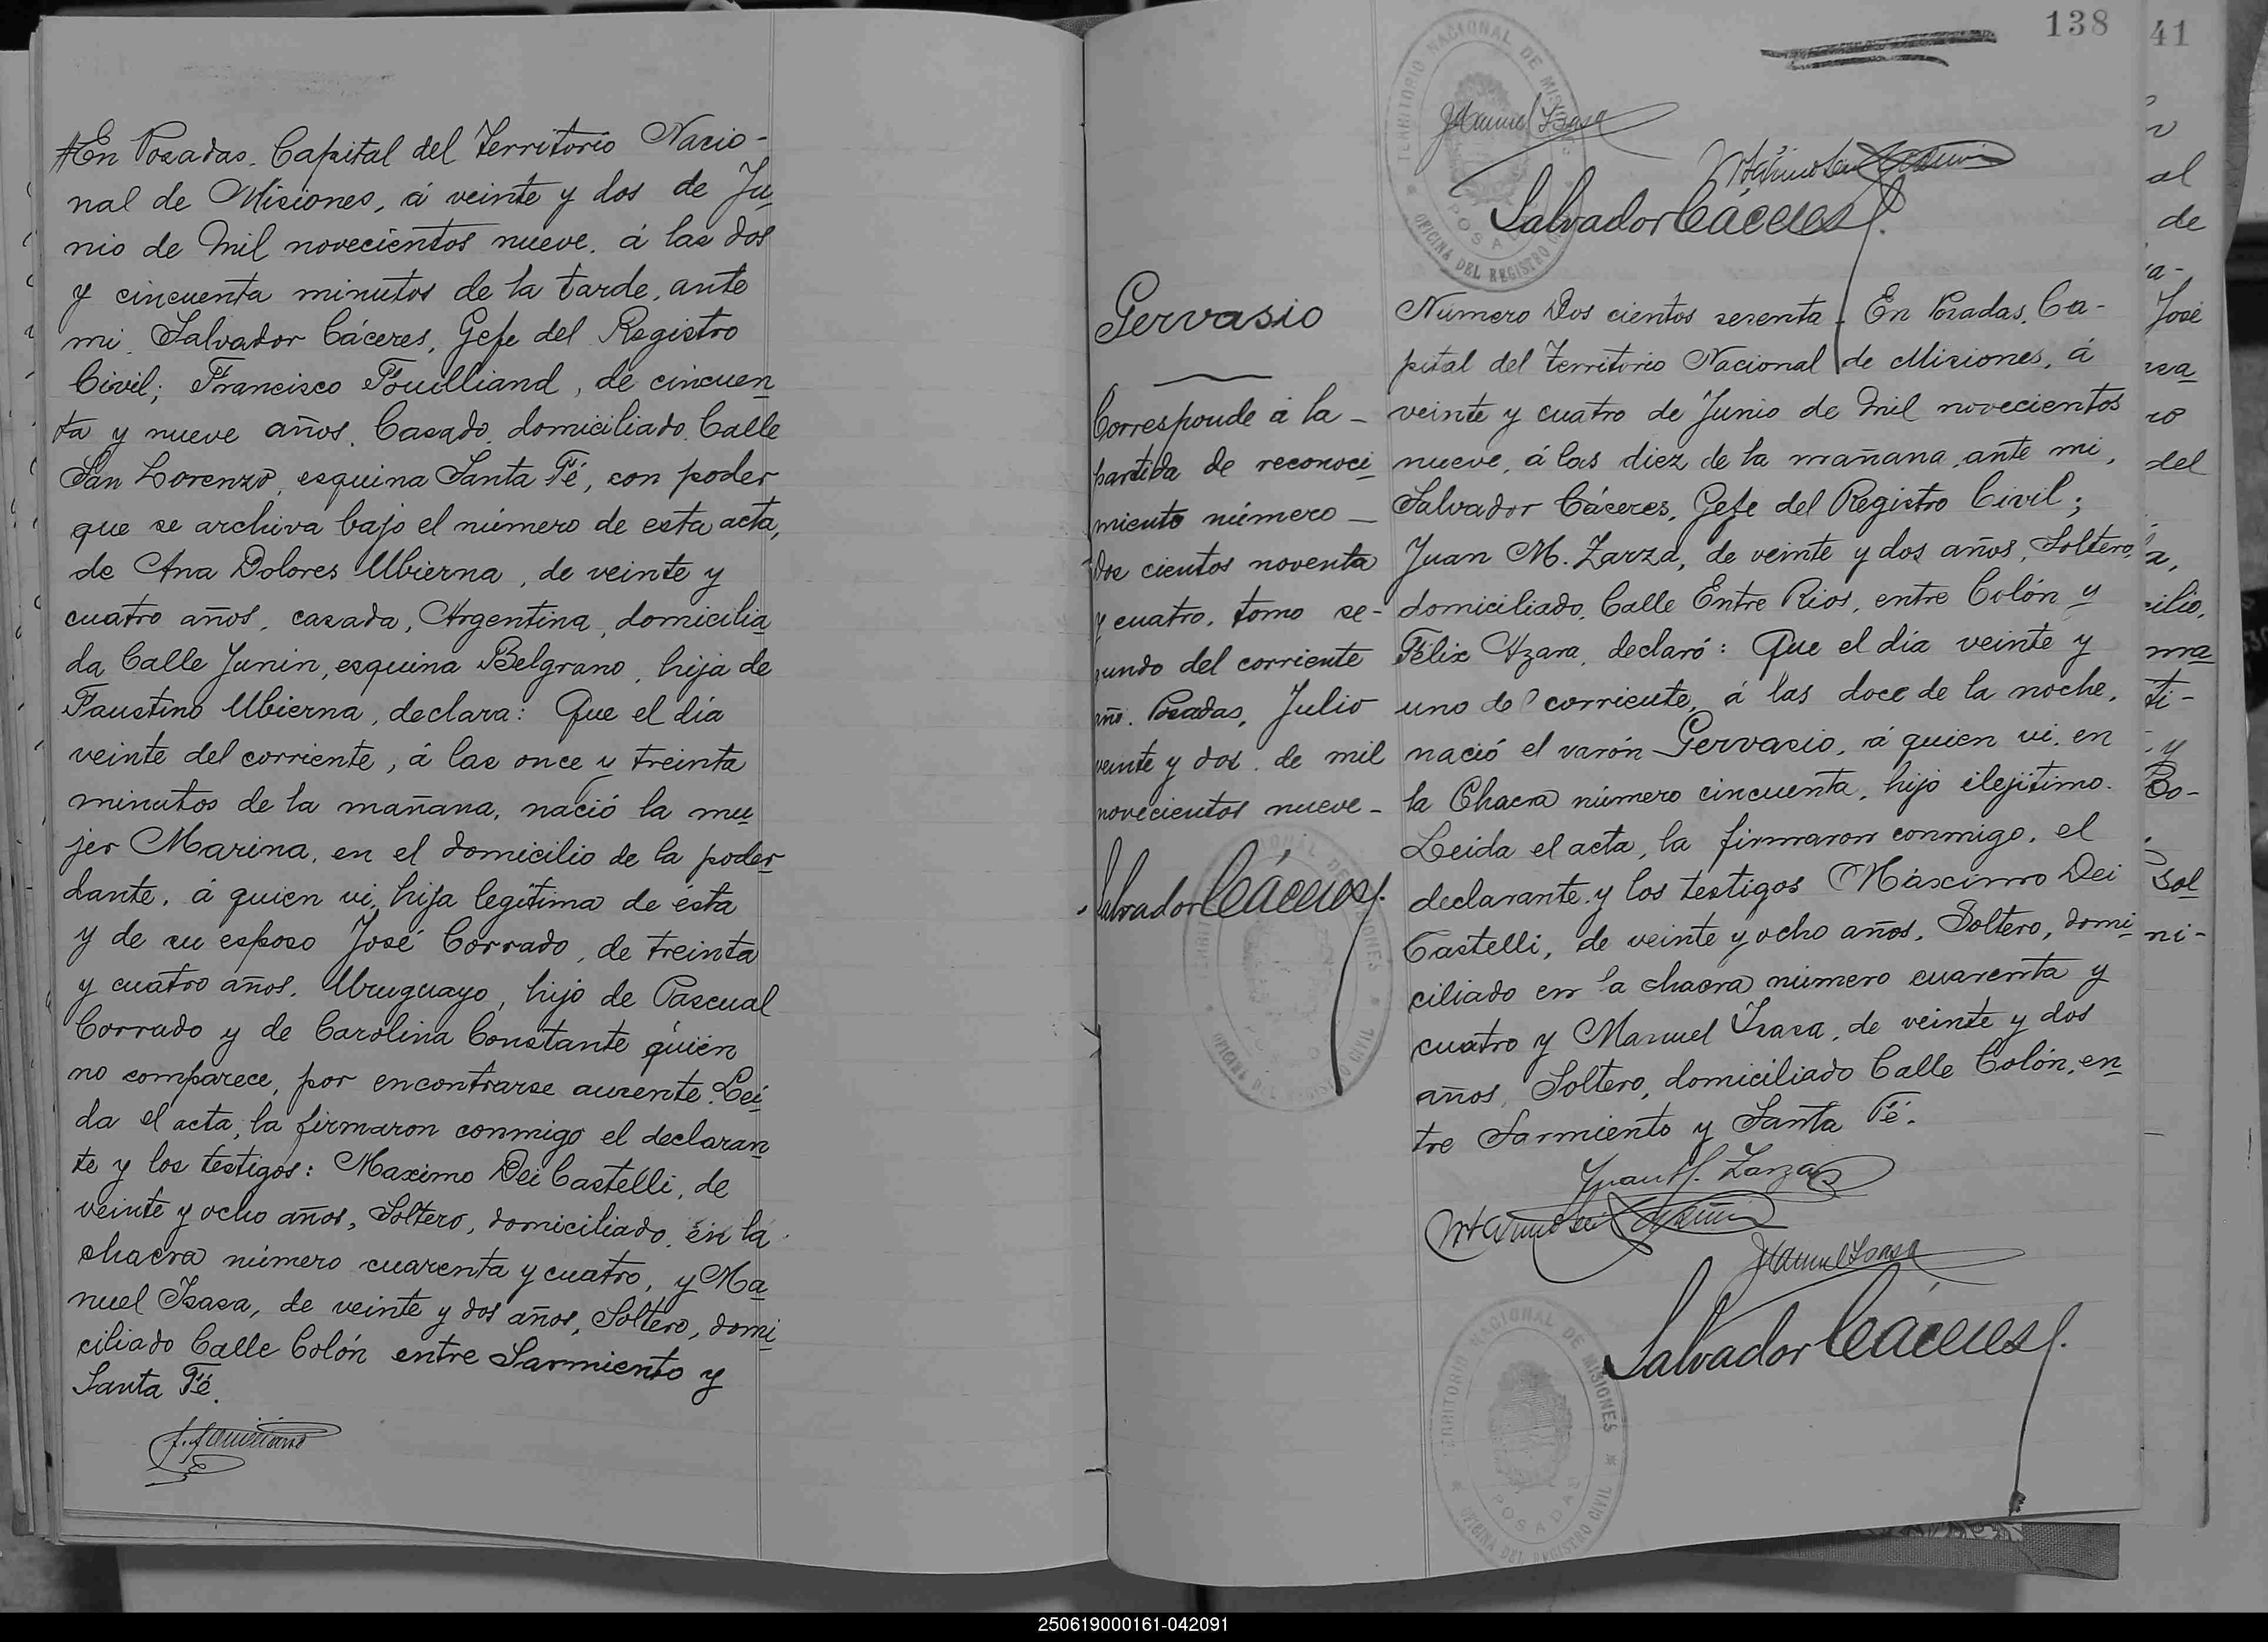 En Posadas. Capital del Territorio Nacio-
nal de Misiones, á veinte y dos de Ju
nio de Mil novecientos nueve. á las dos
y cincuenta minutos de la tarde, ante
mi. Salvador Cáceres, Gefe del Registro
Civil; Francisco Fouilliand, de cincuen
ta y nueve años. Casado. domiciliado. Calle
San Lorenzo, esquina Santa Fé, con poder
que se archiva bajo el número de esta acta,
de Ana Dolores Ubierna, de veinte y
cuatro años, casada, Argentina, domicilia
da Calle Junin, esquina Belgrano, hija de
Faustino Ubierna, declara: Que el día
veinte del corriente, á las once y treinta
minutos de la mañana, nació la mu
jer Marina, en el domicilio de la poder
dante, á quien vi, hija legítima de ésta
y de su esposo José Corrado, de treinta
y cuatro años, Uruguayo, hijo de Pascual
Corrado y de Carolina Constante quien
no comparece, por encontrarse ausente. Lei
da el acta, la firmaron conmigo el declaran
te y los testigos: Maximo Dei Castelli, de
veinte y ocho años, Soltero, domiciliado. en la
chacra número cuarenta y cuatro, y Ma
nuel Isasa, de veinte y dos años, Soltero, domi
ciliado Calle Colón entre Sarmiento y
Santa Fé.
138
41
TERRITORIO NACIONAL DE MISIONES
OFICINA DEL REGISTRO CIVIL
POSADAS
Manuel Isasa
Salvador Cáceres
Gervasio
Corresponde á la -
partida de reconoci
miento número -
dos cientos noventa
y cuatro, tomo se-
gundo del corriente
año. Posadas, Julio
veinte y dos de mil
novecientos nueve -
Salvador Cáceres
Número Dos cientos sesenta. En Posadas, Ca-
pital del Territorio Nacional de Misiones, á
veinte y cuatro de Junio de Mil novecientos
nueve, á las diez de la mañana, ante mi,
Salvador Cáceres, Gefe del Registro Civil;
Juan M. Zarza, de veinte y dos años, Soltero,
domiciliado. Calle Entre Rios, entre Colón y
Félix Azara, declaró: Que el día veinte y
uno del corriente, á las doce de la noche,
nació el varón Gervasio, á quien vi, en
la Chacra número cincuenta, hijo ilejítimo.
Leida el acta, la firmaron conmigo, el
declarante y los testigos Máximo Dei
Castelli, de veinte y ocho años, Soltero, domi
ciliado en la chacra número cuarenta y
cuatro y Manuel Isasa, de veinte y dos
años, Soltero, domiciliado Calle Colón, en
tre Sarmiento y Santa Fé.
Juan M. Zarza
Manuel Isasa
Salvador Cáceres
TERRITORIO NACIONAL DE MISIONES
OFICINA DEL REGISTRO CIVIL
POSADAS
al
de
José
del
250619000161-042091